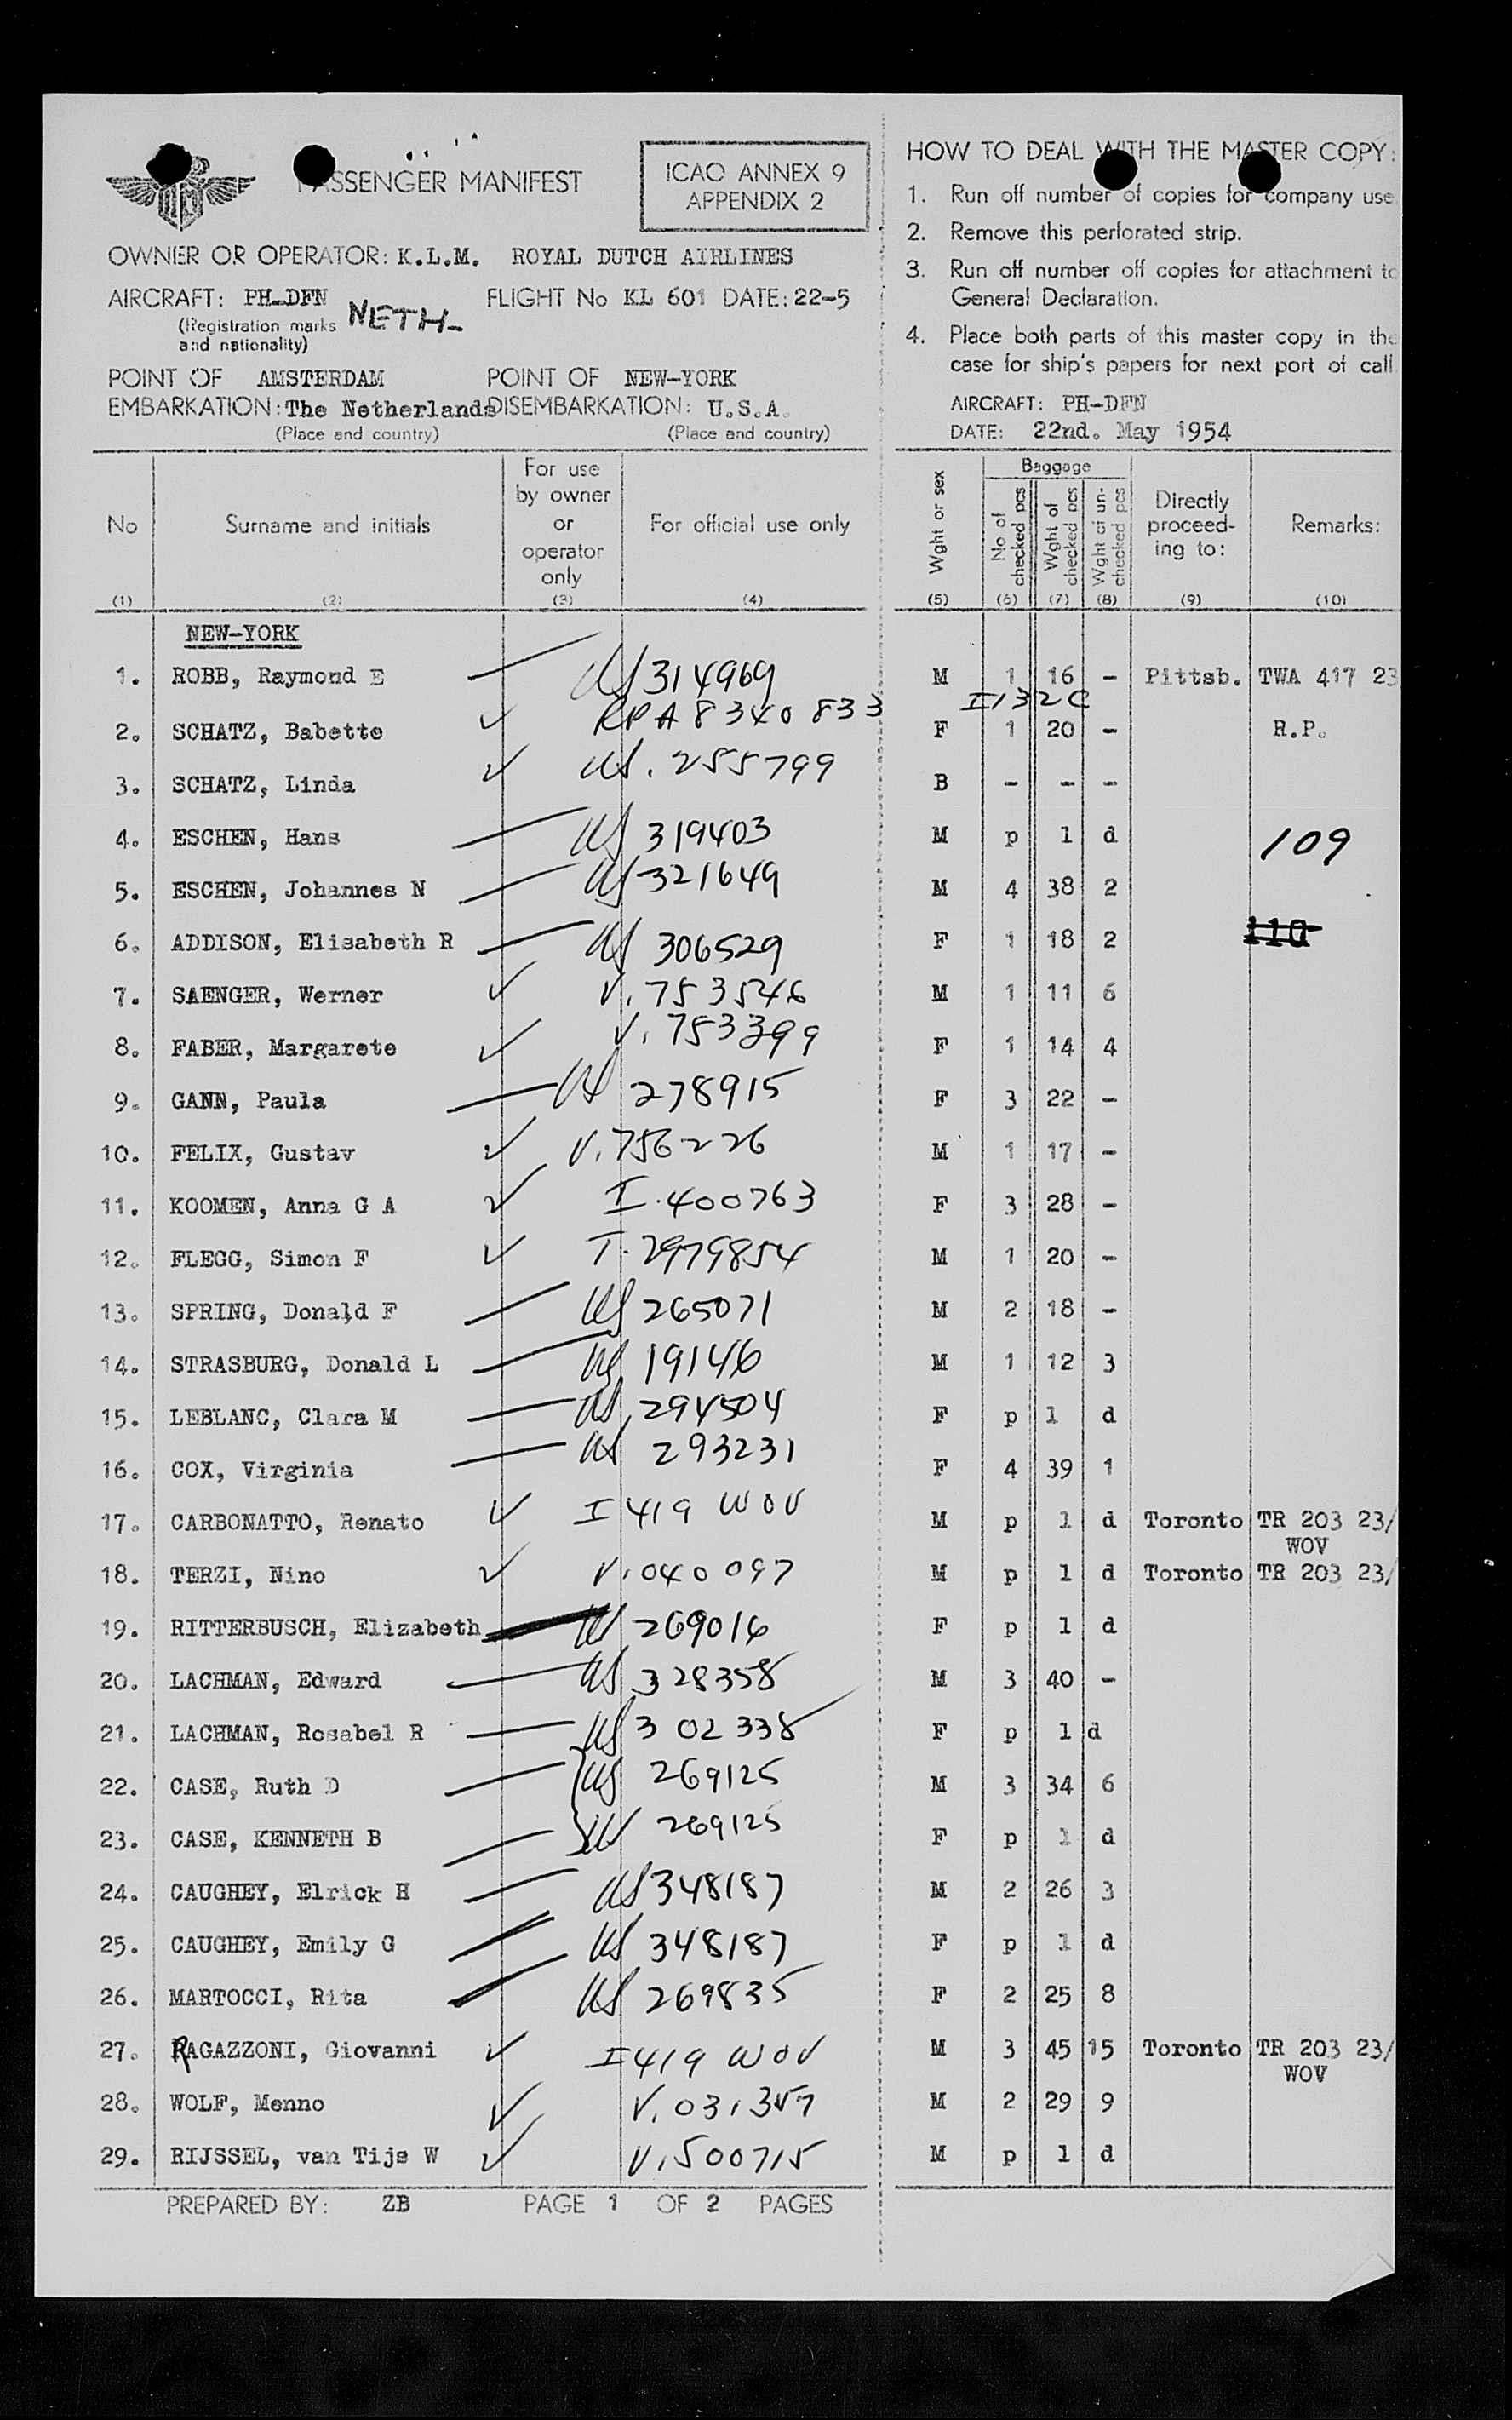 PASSENGER MANIFEST
ICAO ANNEX 9
APPENDIX 2
OWNER OR OPERATOR: K.L.M. ROYAL DUTCH AIRLINES
AIRCRAFT: PH-DFN FLIGHT No KL 601 DATE: 22-5
(Registration marks and nationality) NETH-
POINT OF EMBARKATION: AMSTERDAM The Netherlands
(Place and country)
POINT OF DISEMBARKATION: NEW-YORK U.S.A.
(Place and country)
HOW TO DEAL WITH THE MASTER COPY:
1. Run off number of copies for company use
2. Remove this perforated strip.
3. Run off number off copies for attachment to
General Declaration.
4. Place both parts of this master copy in the
case for ship's papers for next port of call
AIRCRAFT: PH-DFN
DATE: 22nd. May 1954
No (1) Surname and initials (2) For use by owner or operator only (3) For official use only (4) Wght or sex (5) Baggage No of checked pcs (6) Wght of checked pcs (7) Wght of un-checked pcs (8) Directly proceed-ing to: (9) Remarks: (10)
NEW-YORK
1. ROBB, Raymond E US 314969 M 1 16 - Pittsb. TWA 417 23
2. SCHATZ, Babette RPA 8340 833 I132C F 1 20 - R.P.
3. SCHATZ, Linda US. 255799 B - - -
4. ESCHEN, Hans US 319403 M p 1 d 109
5. ESCHEN, Johannes N US 321649 M 4 38 2
6. ADDISON, Elisabeth R US 306529 F 1 18 2
7. SAENGER, Werner V. 753546 M 1 11 6
8. FABER, Margarete V. 753399 F 1 14 4
9. GANN, Paula US 278915 F 3 22 -
10. FELIX, Gustav V. 756226 M 1 17 -
11. KOOMEN, Anna G A I. 400763 F 3 28 -
12. FLEGG, Simon F T. 2979854 M 1 20 -
13. SPRING, Donald F US 265071 M 2 18 -
14. STRASBURG, Donald L US 19146 M 1 12 3
15. LEBLANC, Clara M US 294504 F p 1 d
16. COX, Virginia US 293231 F 4 39 1
17. CARBONATTO, Renato I 419 WOV M p 1 d Toronto TR 203 23/
WOV
18. TERZI, Nino V. 040097 M p 1 d Toronto TR 203 23/
19. RITTERBUSCH, Elizabeth US 269016 F p 1 d
20. LACHMAN, Edward US 328358 M 3 40 -
21. LACHMAN, Rosabel R US 302338 F p 1 d
22. CASE, Ruth D US 269125 M 3 34 6
23. CASE, KENNETH B US 269125 F p 1 d
24. CAUGHEY, Elrick H US 348187 M 2 26 3
25. CAUGHEY, Emily G US 348187 F p 1 d
26. MARTOCCI, Rita US 269835 F 2 25 8
27. RAGAZZONI, Giovanni I 419 WOV M 3 45 15 Toronto TR 203 23/
WOV
28. WOLF, Menno M 2 29 9
29. RIJSSEL, van Tijs W V. 500715 M p 1 d
PREPARED BY: ZB PAGE 1 OF 2 PAGES